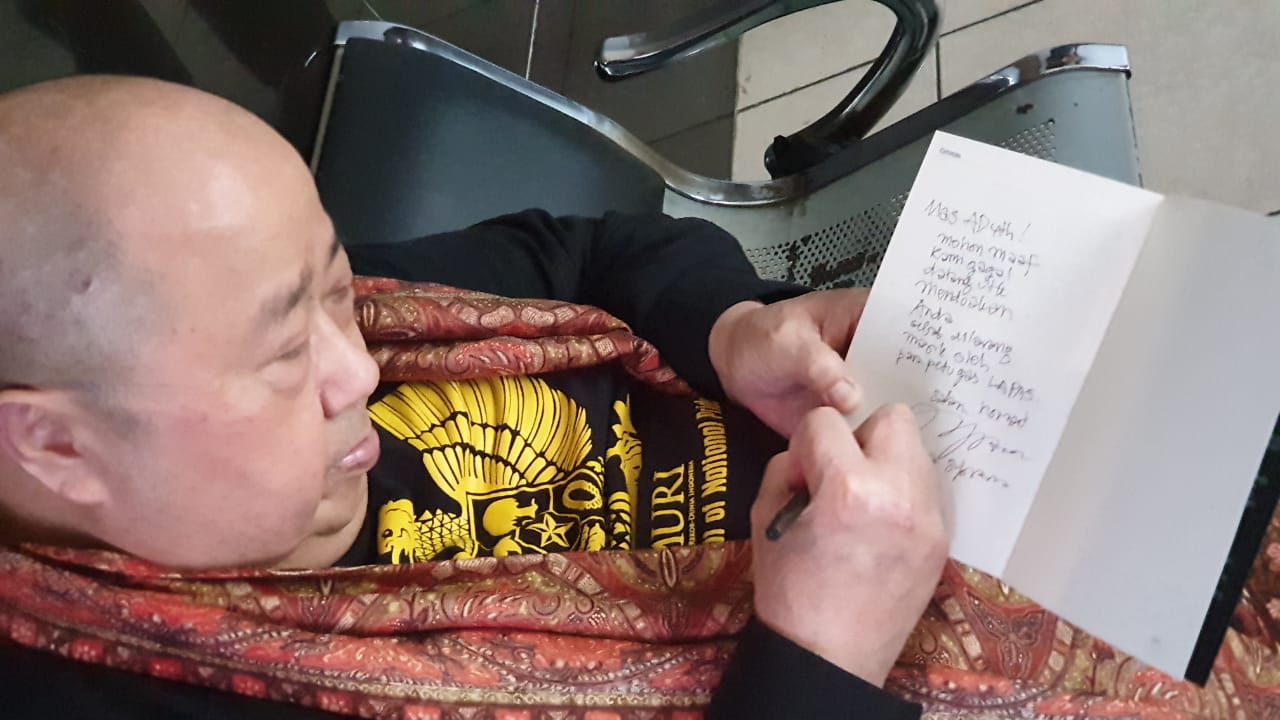 Mas ADyth!
mohon maaf
kami gagal
datang utk
mendoakan
Anda
sebab dilarang
masuk oleh
para petugas LAPAS.
salam hormat
MURI
REKOR-DUNIA INDONESIA
of National